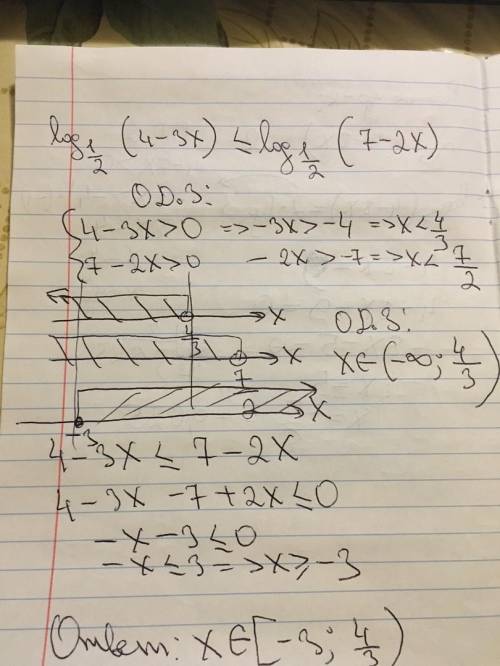 log 1/2 (4-3x) ≤ log 1/2 (7-2x)
О.D.З:
{ 4-3x>0 => -3x>-4 => x<4/3
7-2x>0 -2x>-7 => x<7/2
4/3 x
О.D.З:
7/2 x
x∈(-∞; 4/3)
-3 x
4-3x ≤ 7-2x
4-3x -7+2x ≤ 0
-x-3 ≤ 0
-x ≤ 3 => x ≥ -3
Ответ: x∈[-3; 4/3)